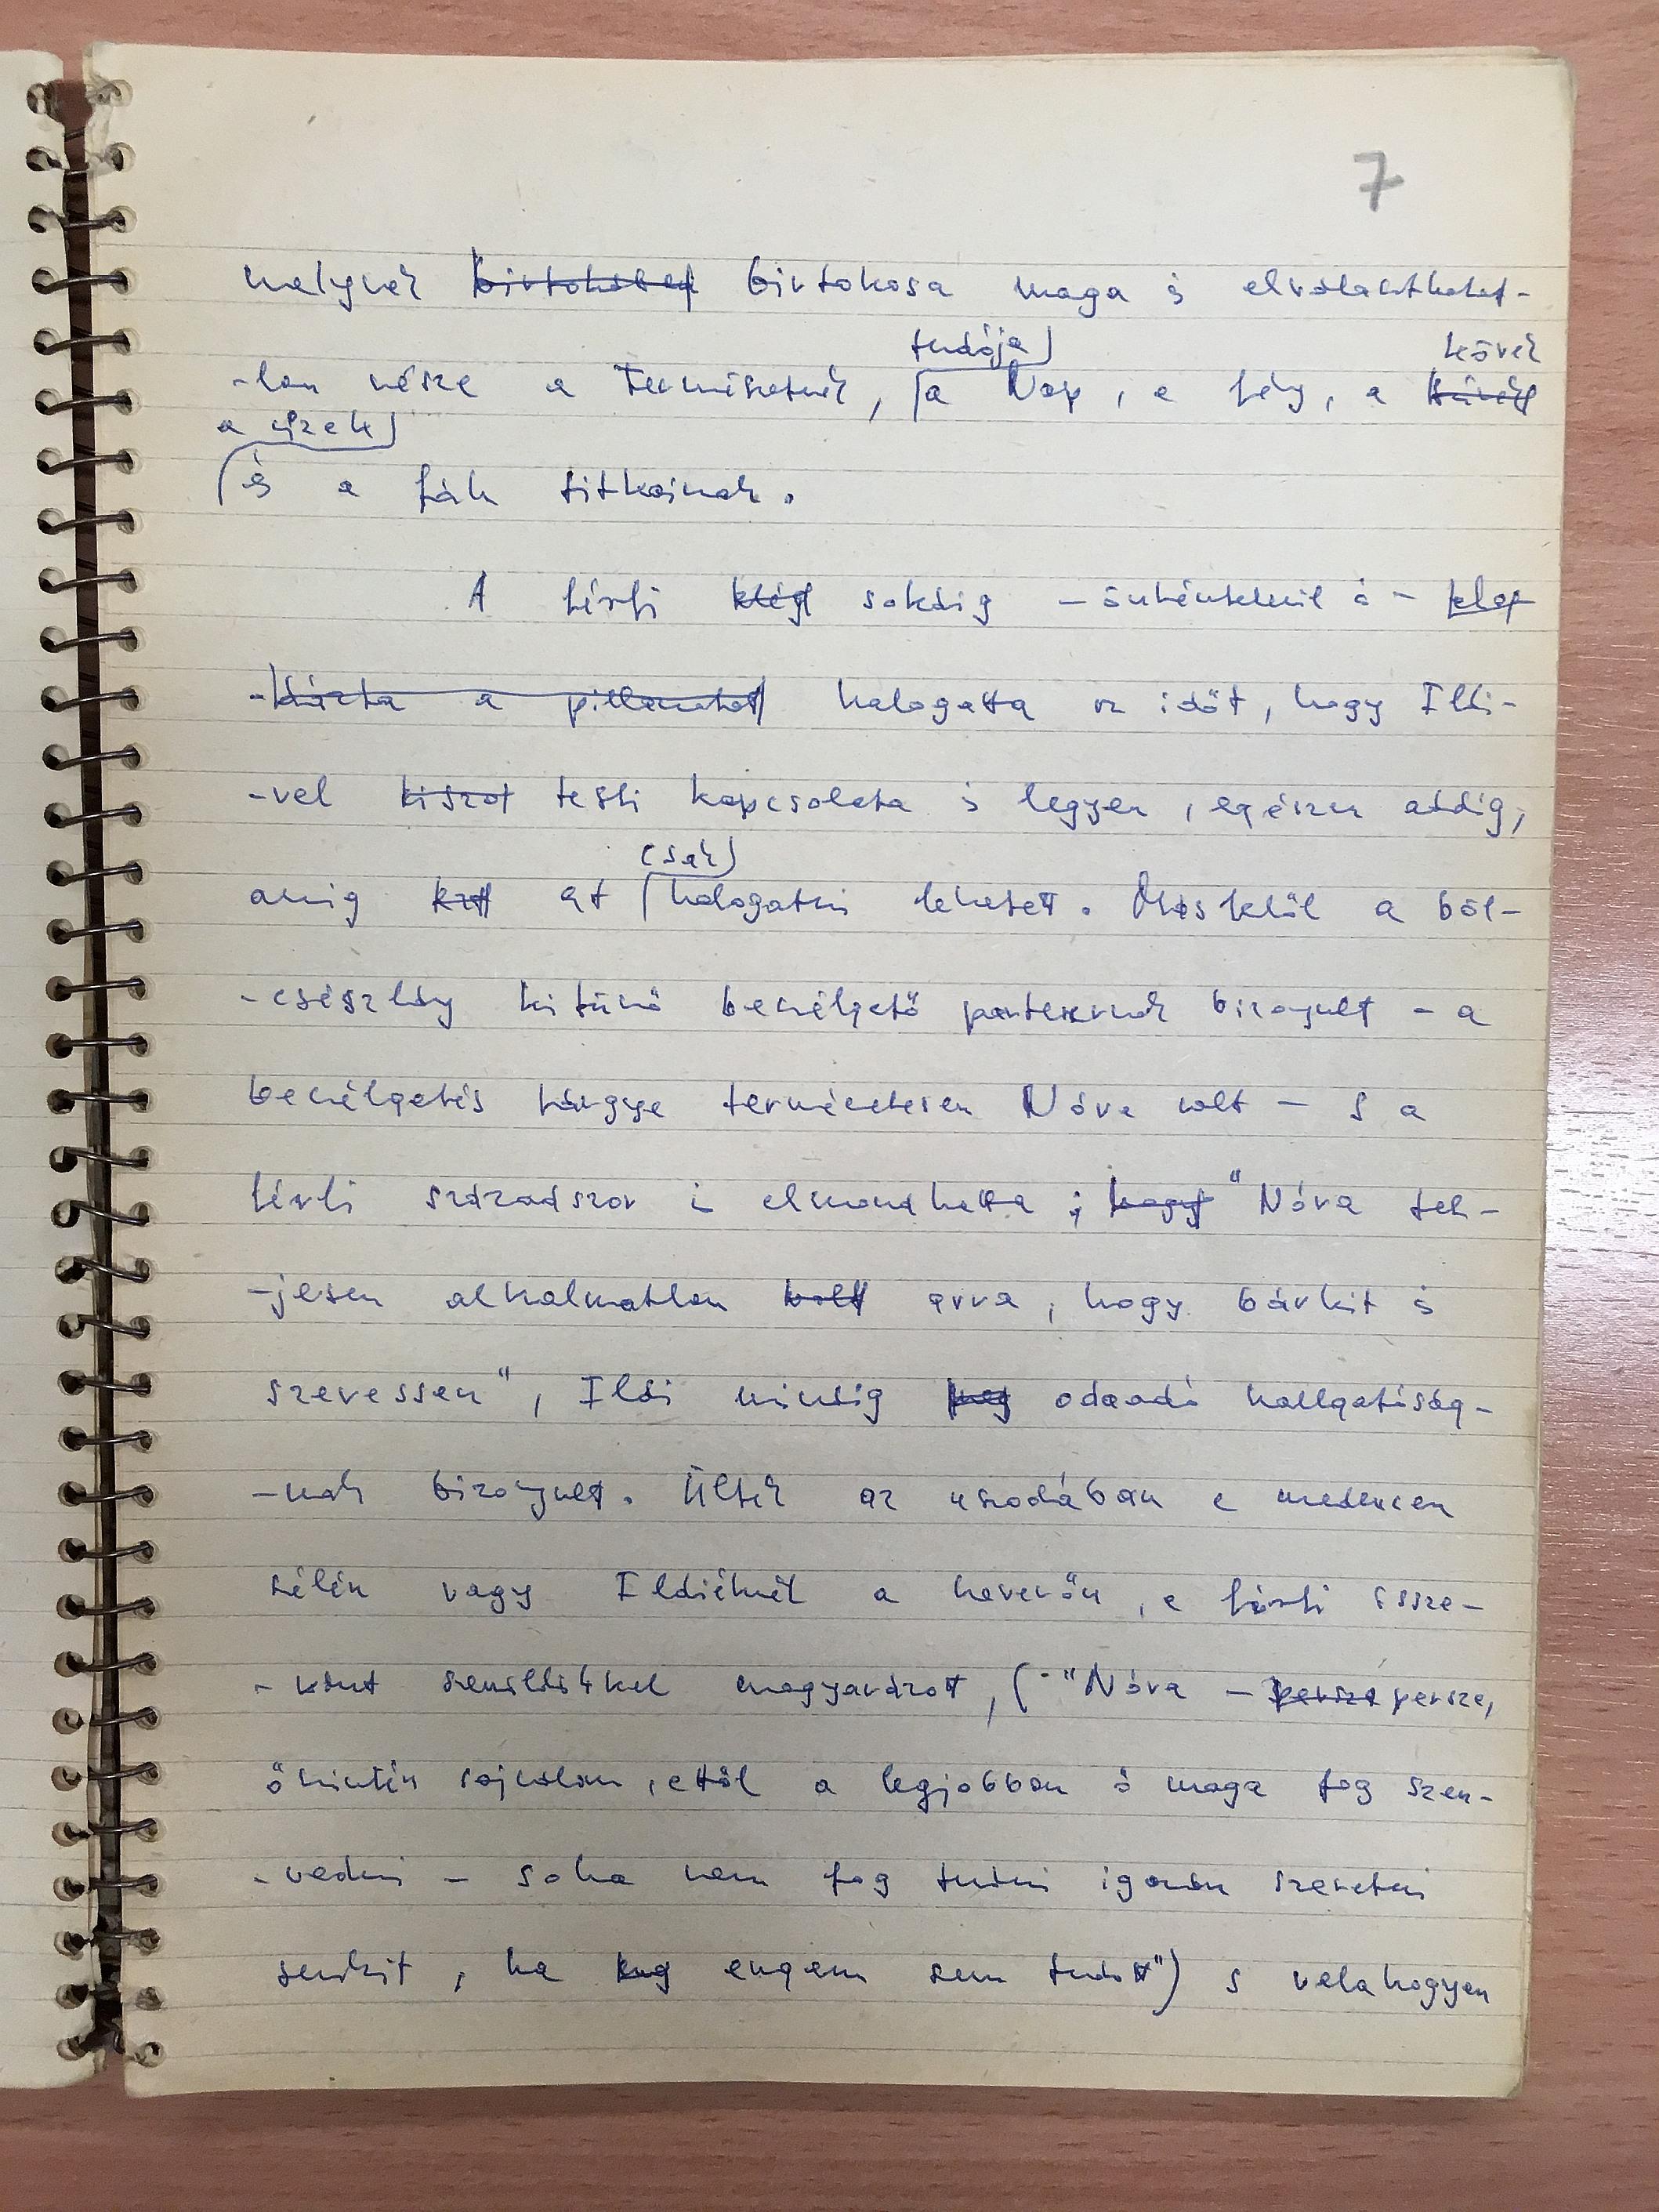 7
melynek birtokosa birtokosa maga is elválaszthatat-
tudója kövek
-lan része a Természetnek, a Nap, a fény, a
a vizek
és a fák titkainak.
A férfi sokáig - önkéntelenül is -
a pillanatot halogatta az időt, hogy Ildi-
-vel testi kapcsolata is legyen, egészen addig,
csak
amig ezt halogatni lehetett. Másfelől a böl-
-csészlány kitünő beszélgető partnernek bizonyult - a
beszélgetés tárgya természetesen Nóra volt - s a
férfi százszor is elmondhatta, hogy "Nóra tel-
-jesen alkalmatlan volt arra, hogy bárkit is
szeressen", Ildi mindig meg odaadó hallgatóság-
-nak bizonyult. Ültek az uszodában a medencen
szélén vagy Ildiéknél a heverőn, a férfi össze-
-vont szemöldökkel magyarázott, ("Nóra - persze persze,
őszintén sajnálom, ettől a legjobban ő maga fog szen-
-vedni - soha nem fog tudni igazán szeretni
senkit, ha engem sem tudott") s valahogyan